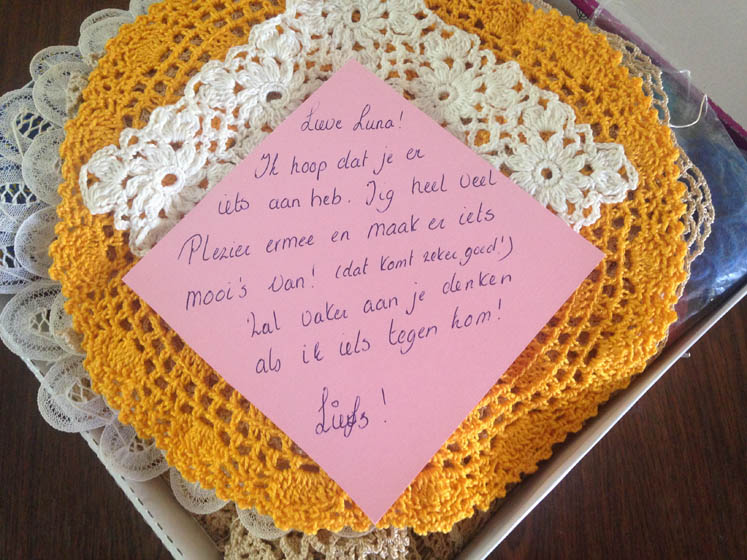 Lieve Luna!
Ik hoop dat je er
iets aan heb. Iig heel veel
Plezier ermee en maak er iets
mooi's van! (dat komt zeker goed!)
Zal vaker aan je denken
als ik iets tegen kom!
Liefs!